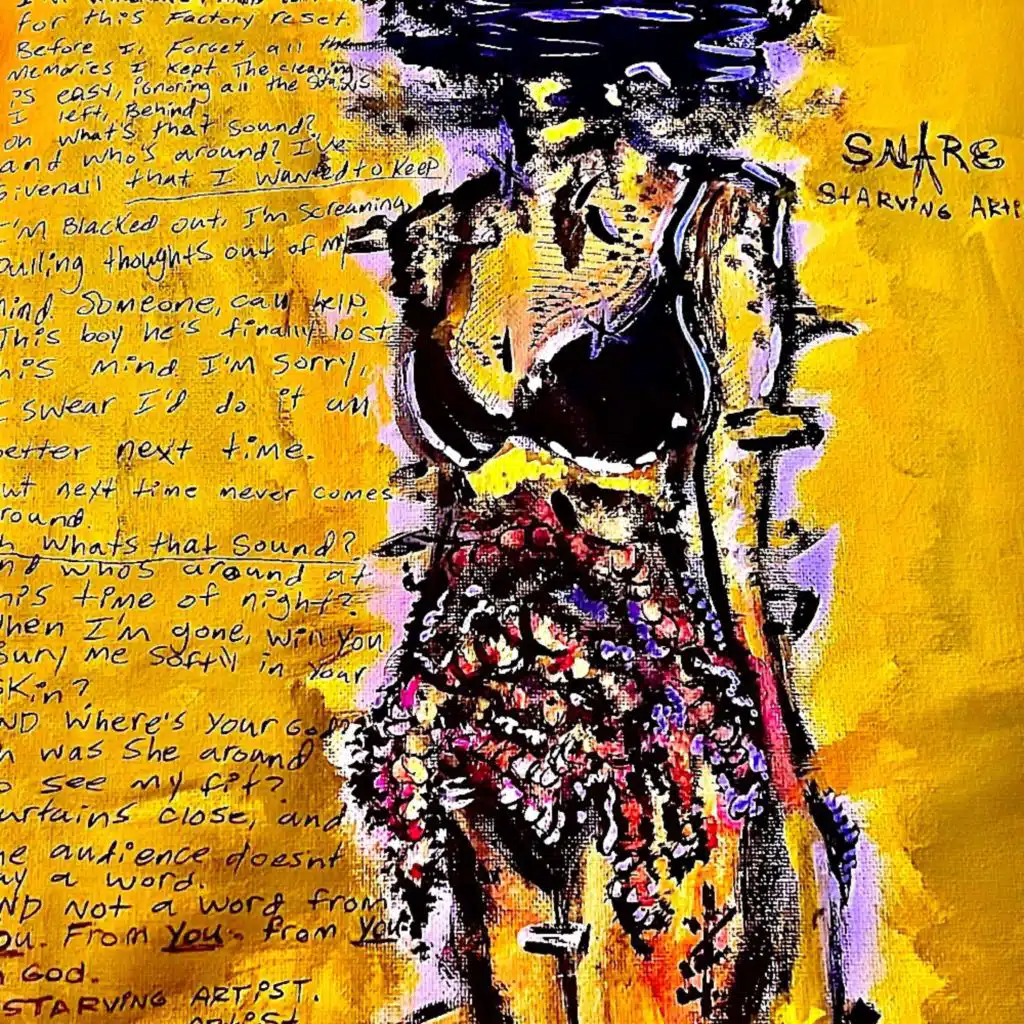 for this Factory reset.
Before I, Forget, all the
Memories I Kept. The cleaning
is easy, ignoring all the stains
I left, Behind
oh what's that sound?
and who's around? I've
Givenall that I wanted to keep
I'M Blacked out, I'm Screaming,
pulling thoughts out of my
mind. Someone, can help.
This boy he's finally lost
his mind I'm Sorry,
I swear I'd do it all
better next time.
but next time never comes
around.
oh whats that Sound?
and whos around at
this time of night?
When I'm gone, will you
Bury me Softly in your
Skin?
AND Where's your God
oh was She around
to see my fit?
curtains close, and
the audience doesnt
say a word.
AND Not a word from
you. From you. from you
oh GOD.
STARVING ARTIST.
ARTIST
SNARE
STARVING ARTI